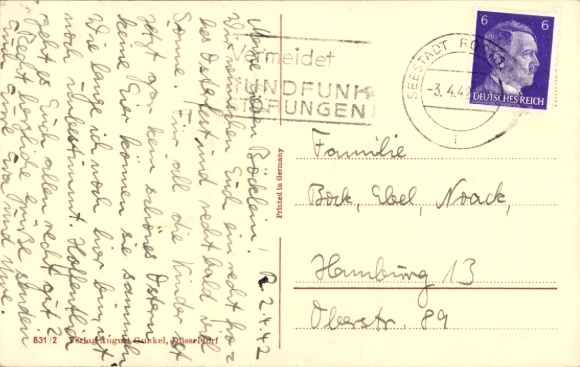 R. 2.4.42
Meine lieben Böcklein!
Wir wünschen Euch ein recht fro=
hes Osterfest und recht bald viel
Sonne. Für all die Kinder ist
jetzt gar kein schönes Ostern
keine Eier können sie sammeln.
Wie lange ich noch hier bin, ist
noch unbestimmt. Hoffentlich
geht es Euch allen recht gut?
Recht herzliche Grüße senden
Euch Eure Ewa und Uwe.
Vermeidet
RUNDFUNK
STÖRUNGEN
SEESTADT ROSTOCK
-3.4.42
1
6 6
DEUTSCHES REICH
Printed in Germany
Familie
Bock, Ebel, Noack,
Hamburg 13
Oberstr. 89
831/2 Verlag August Gunkel, Düsseldorf